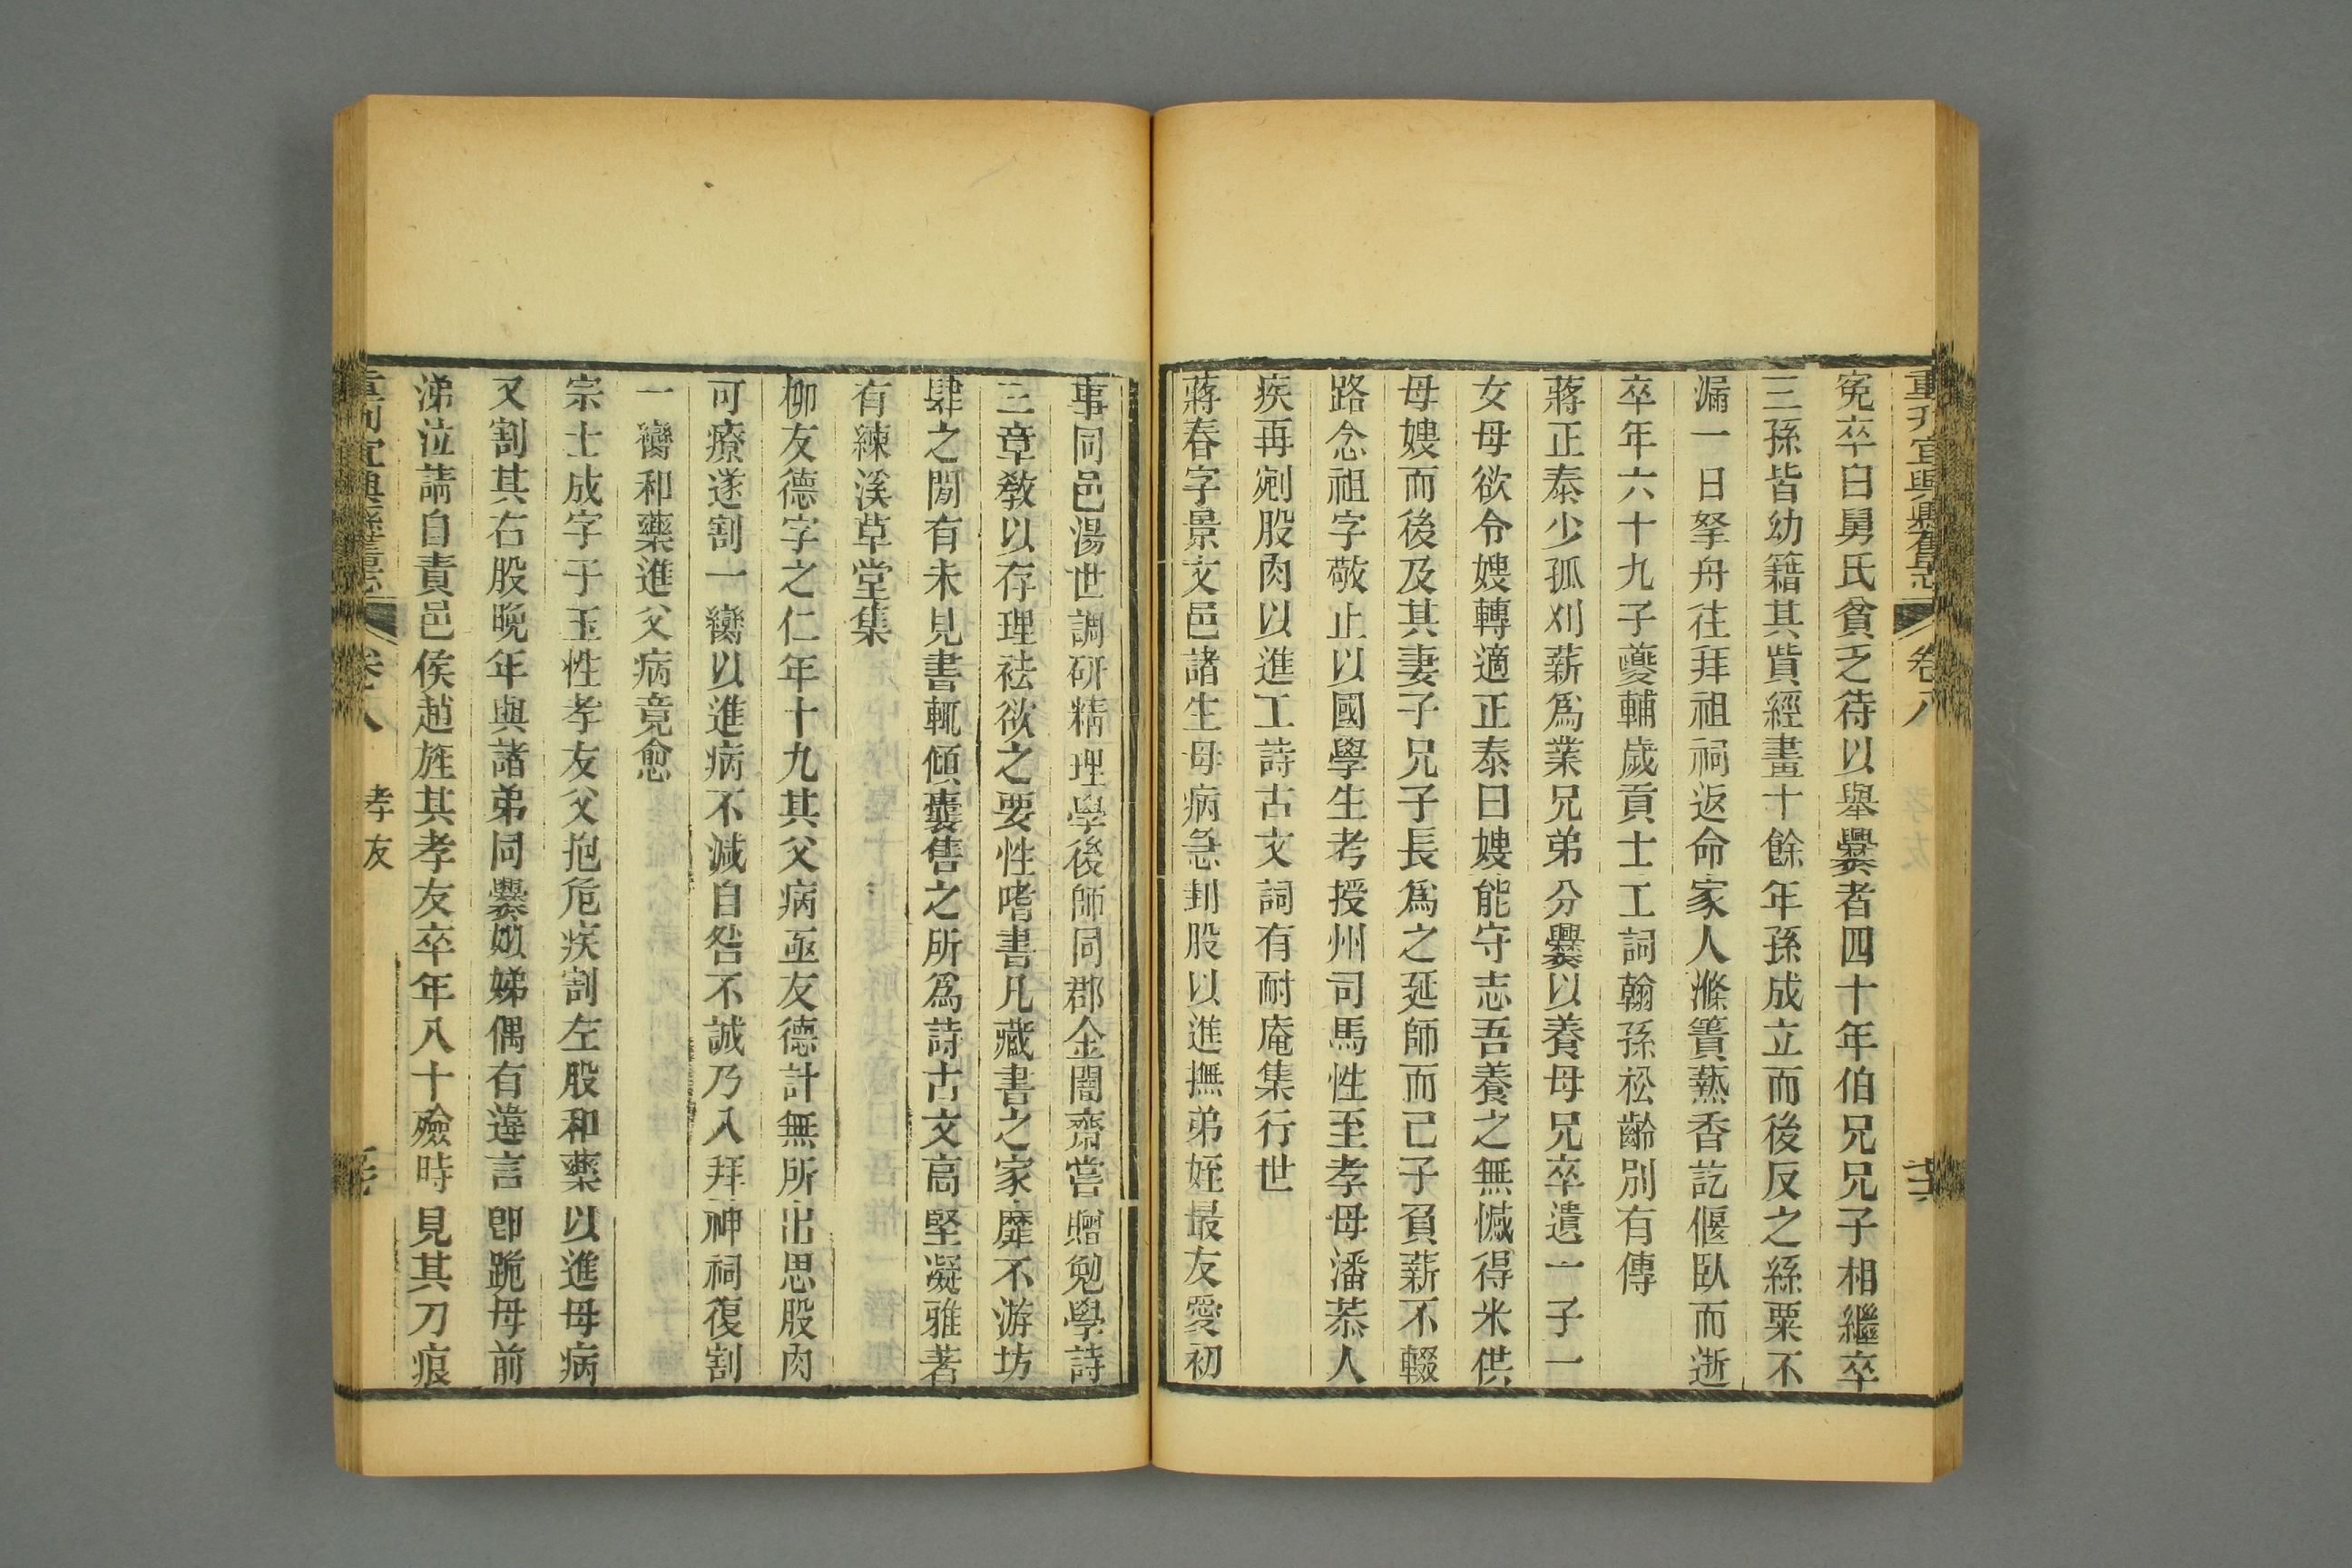 重刊宜興縣舊志 卷八
冤卒白舅氏貧乏待以舉爨者四十年伯兄兄子相繼卒
三孫皆幼籍其貲經畫十餘年孫成立而後反之絲粟不
漏一日拏舟往拜祖祠返命家人滌簀爇香訖偃臥而逝
卒年六十九子夔輔歲貢士工詞翰孫松齡別有傳
蔣正泰少孤刈薪爲業兄弟分爨以養母兄卒遺一子一
女母欲令嫂轉適正泰曰嫂能守志吾養之無憾得米供
母嫂而後及其妻子兄子長爲之延師而己子負薪不輟
路念祖字敬止以國學生考授州司馬性至孝母潘恭人
疾再剜股肉以進工詩古文詞有耐庵集行世
蔣春字景文邑諸生母病急刲股以進撫弟姪最友愛初
事同邑湯世調研精理學後師同郡金闇齋嘗贈勉學詩
三章敎以存理祛欲之要性嗜書凡藏書之家靡不游坊
肆之閒有未見書輒傾囊售之所爲詩古文高堅凝雅著
有練溪草堂集
柳友德字之仁年十九其父病亟友德計無所出思股肉
可療遂割一臠以進病不減自咎不誠乃入拜神祠復割
一臠和藥進父病竟愈
宗士成字于玉性孝友父抱危疾割左股和藥以進母病
又割其右股晚年與諸弟同爨娰娣偶有違言卽跪母前
涕泣請自責邑侯趙旌其孝友卒年八十殮時見其刀痕
重刊宜興縣舊志 卷八 孝友